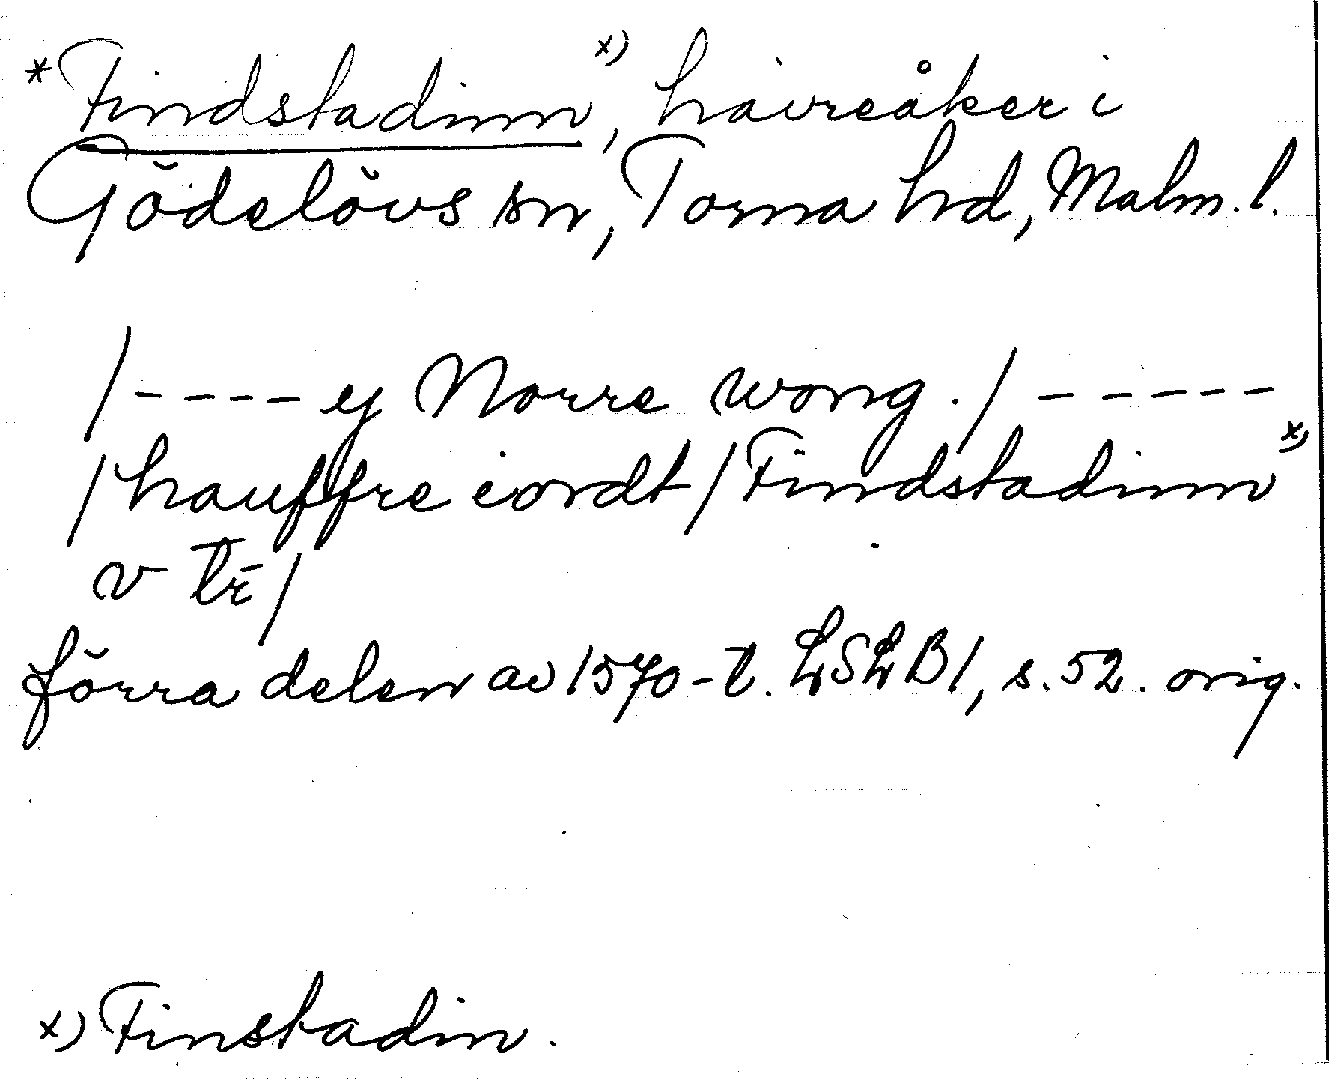 *Findstadinn x), havreåker i
Gödelövs sn, Torna hd, Malm. l.
/----y Norre wong./-----
/hauffre iordt/Findstadinn x)
v tr̄/
förra delen av 1570-t. LSLB1, s. 52. orig.
x) Finstadin.